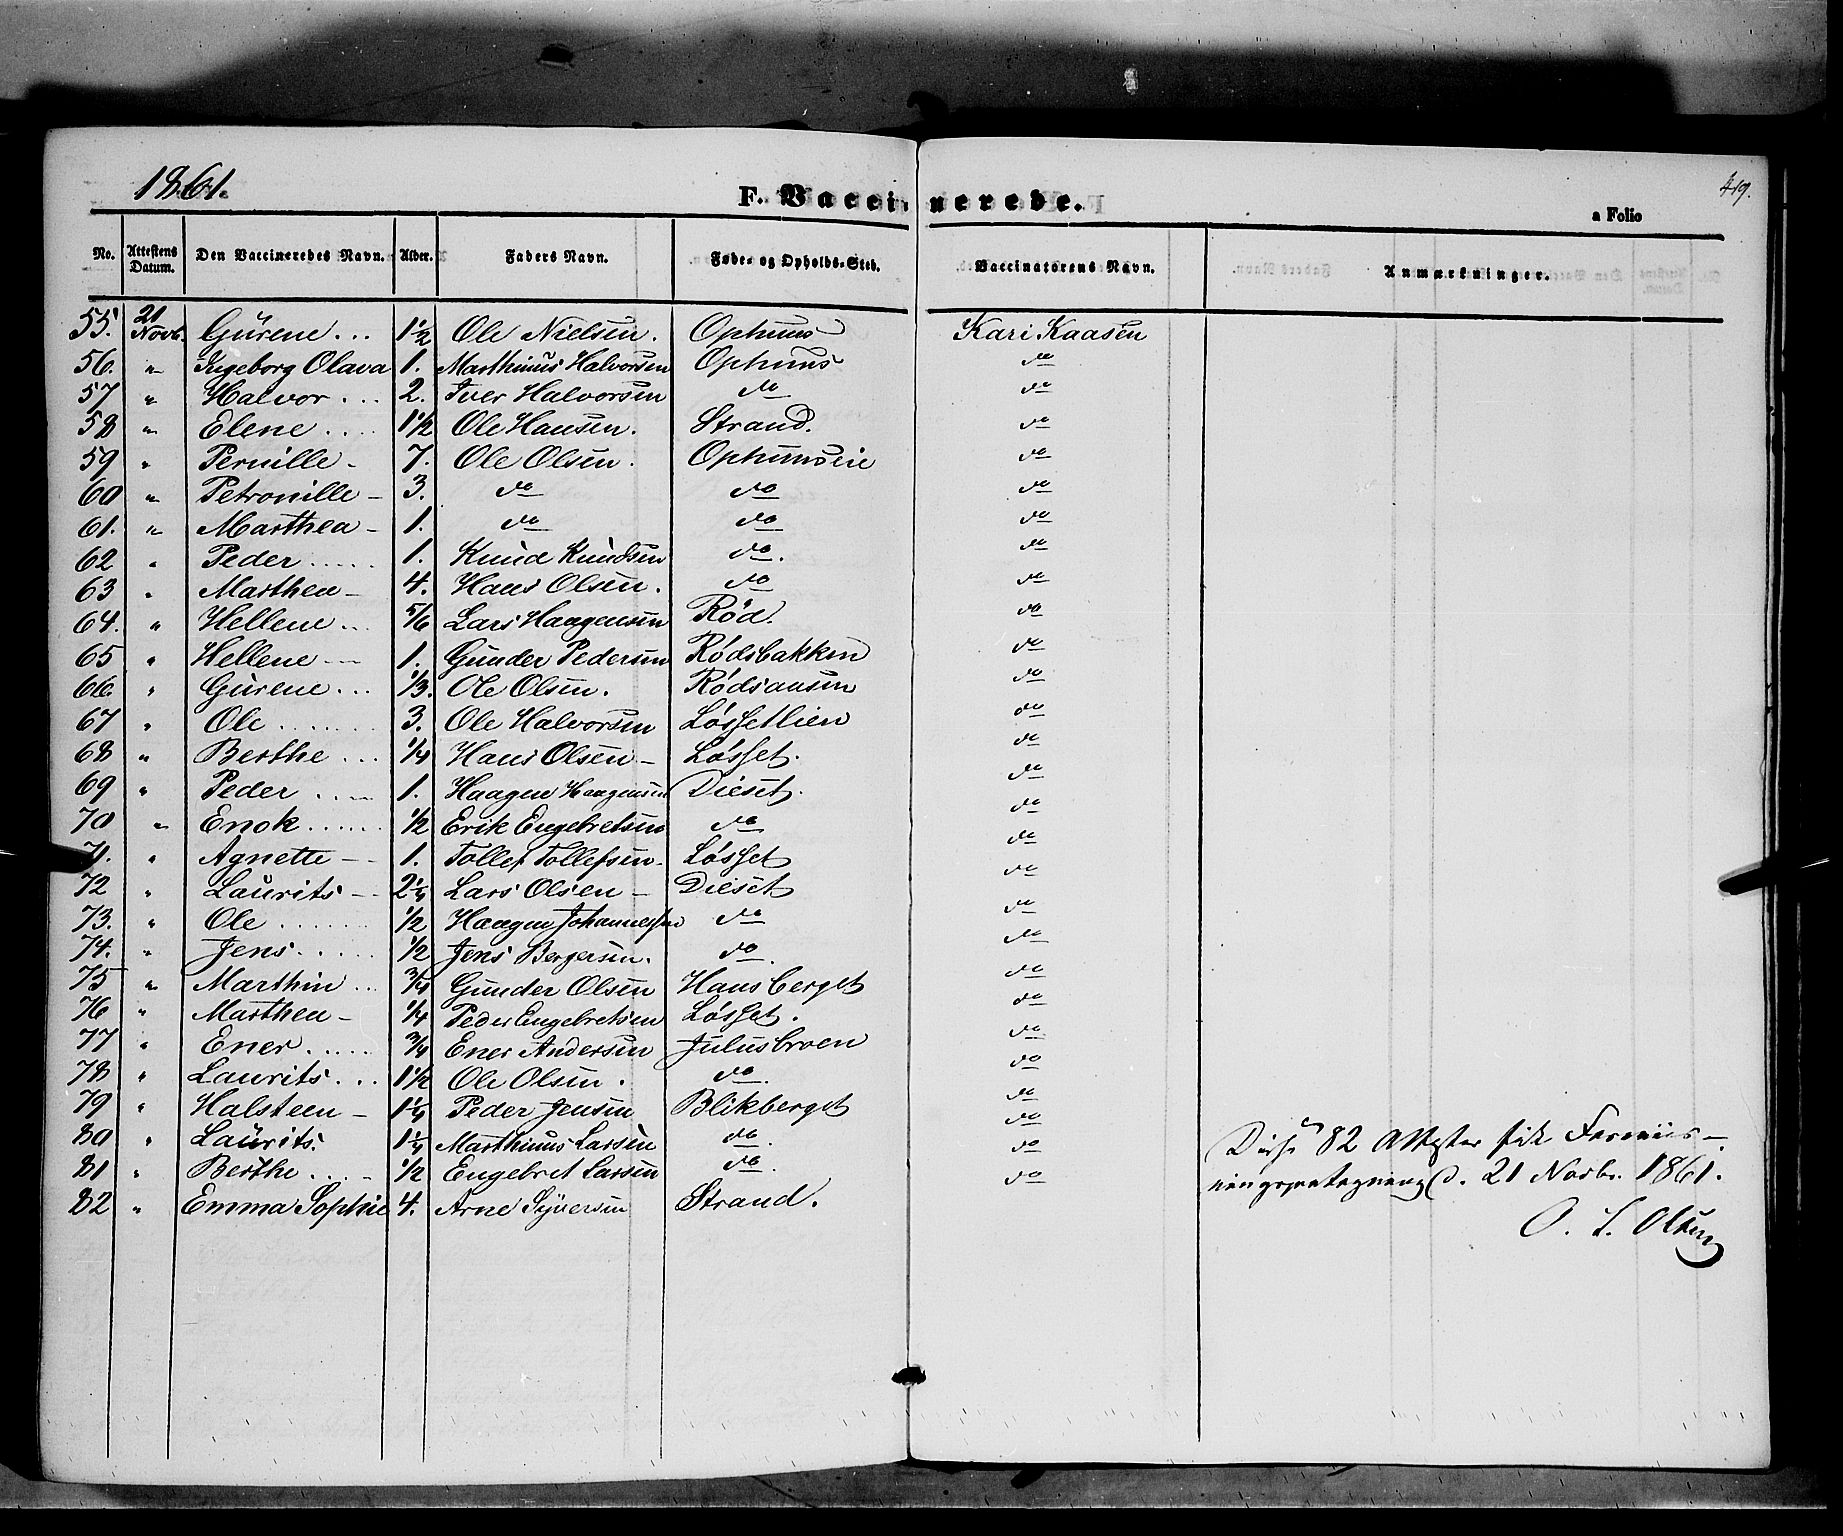 1861.
F. Vaccinerede.
419.
a Folio
No. Attestens Datum. Den Vaccineredes Navn. Alder. Faders Navn. Føde- og Opholds-Sted. Vaccinatørens Navn. Anmærkninger.
55. 21 Novb. Gurene ... 1½ Ole Nielsen. Ophuus Kari Kaasen
56. " Ingeborg Olava 1. Marthinus Halvorsen Ophuus do
57 " Halvor ... 2. Iver Halvorsen do do
58 " Elene .... 1½ Ole Hansen. Strand. do
59 " Pernille - 7. Ole Olsen. Ophuuseie do
60 " Petronille - 3. do do do
61. " Marthea - 1. do do do
62 " Peder ..... 1. Knud Knudsen do. do
63 " Marthea - 4. Hans Olsen. do do
64. " Hellene ... 5/6 Lars Haagensen Rød. do
65 " Hellene --- 1. Gunder Pedersen Rødsbakken do
66 " Gurene ... 1/3. Ole Olsen. Rødsaasen do
67 " Ole ....... 3. Ole Halvorsen Løssetlien do
68 " Berthe ... 1/4 Hans Olsen - Løsset. do
69 " Peder .... 1. Haagen Haagensen Dieset. do
70 " Enok ...... 1/2 Erik Engebretsen do do
71. " Agnette -- 1. Tollef Tollefsen. Løsset do
72 " Laurits -- 2¼ Lars Olsen - Dieset do
73. " Ole ....... 1/2 Haagen Johannessen do do
74. " Jens ..... 1/2 Jens Bergersen. do. do
75 " Marthin ... 3/4 Gunder Olsen Hansberget do
76 " Marthea - 1/4 Peder Engebretsen Løsset. do
77 " Ener ..... 3/4 Ener Andersen Julusbroen do
78 " Laurits ... 1½ Ole Olsen. do. do
79 " Halsteen - 1¼ Peder Jensen Blikberget do
80 " Laurits. 1¼ Marthinus Larsen do. do
81 " Berthe .... 1/2 Engebret Larsen do. do
82 " Emma Sophie 4. Arne Syversen Strand. do
Disse 82 Attester fik
d. 21 Novbr. 1861.
O. L. Olsen